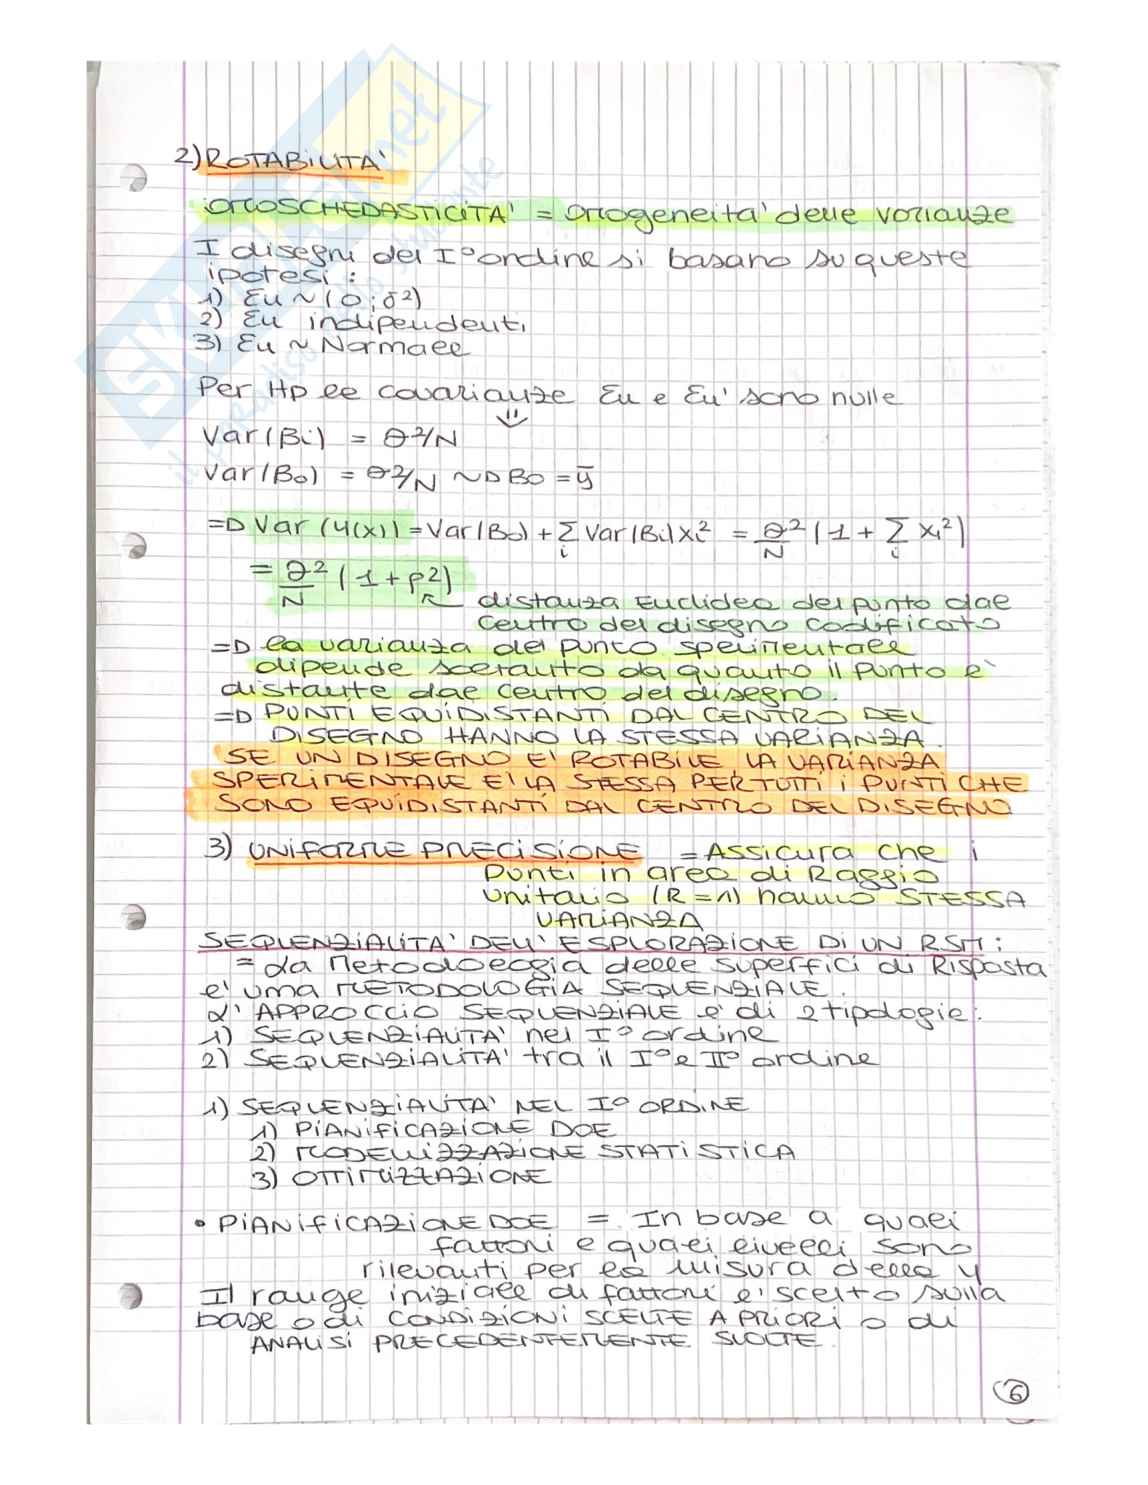 2) ROTABILITA'
OMOSCHEDASTICITA' = omogeneita' delle varianze
I disegni del I° ordine si basano su queste
ipotesi:
1) Eu ~ (0; σ²)
2) Eu indipendenti
3) Eu ~ Normale
Per Hp le covarianze Eu e Eu' sono nulle
Var(Bi) = θ²/N
Var(Bo) = θ²/N ~D Bo = ȳ
=D Var (Y(x)) = Var(Bo) + Σi Var(Bi)xi² = θ²/N (1 + Σi xi²)
= θ²/N (1 + ρ²)
distanza Euclidea del punto dal
centro del disegno codificato
=D la varianza del punto sperimentale
dipende soltanto da quanto il punto e'
distante dal centro del disegno.
=D PUNTI EQUIDISTANTI DAL CENTRO DEL
DISEGNO HANNO LA STESSA VARIANZA.
SE UN DISEGNO E' ROTABILE LA VARIANZA
SPERIMENTALE E' LA STESSA PER TUTTI i PUNTI CHE
SONO EQUIDISTANTI DAL CENTRO DEL DISEGNO
3) UNIFORME PRECISIONE = Assicura che i
punti in area di Raggio
unitario (R=1) hanno STESSA
VARIANZA
SEQUENZIALITA' DELL' ESPLORAZIONE DI UN RSM:
= La Metodologia delle Superfici di Risposta
e' una METODOLOGIA SEQUENZIALE.
L' APPROCCIO SEQUENZIALE e' di 2 tipologie:
1) SEQUENZIALITA' nel I° ordine
2) SEQUENZIALITA' tra il I° e II° ordine
1) SEQUENZIALITA' NEL I° ORDINE
1) PIANIFICAZIONE DOE
2) MODELLIZZAZIONE STATISTICA
3) OTTIMIZZAZIONE
• PIANIFICAZIONE DOE = In base a quali
fattori e quali livelli sono
rilevanti per la misura della y
Il range iniziale di fattori e' scelto sulla
base o di CONDIZIONI SCELTE A PRIORI o di
ANALISI PRECEDENTEMENTE SVOLTE.
6